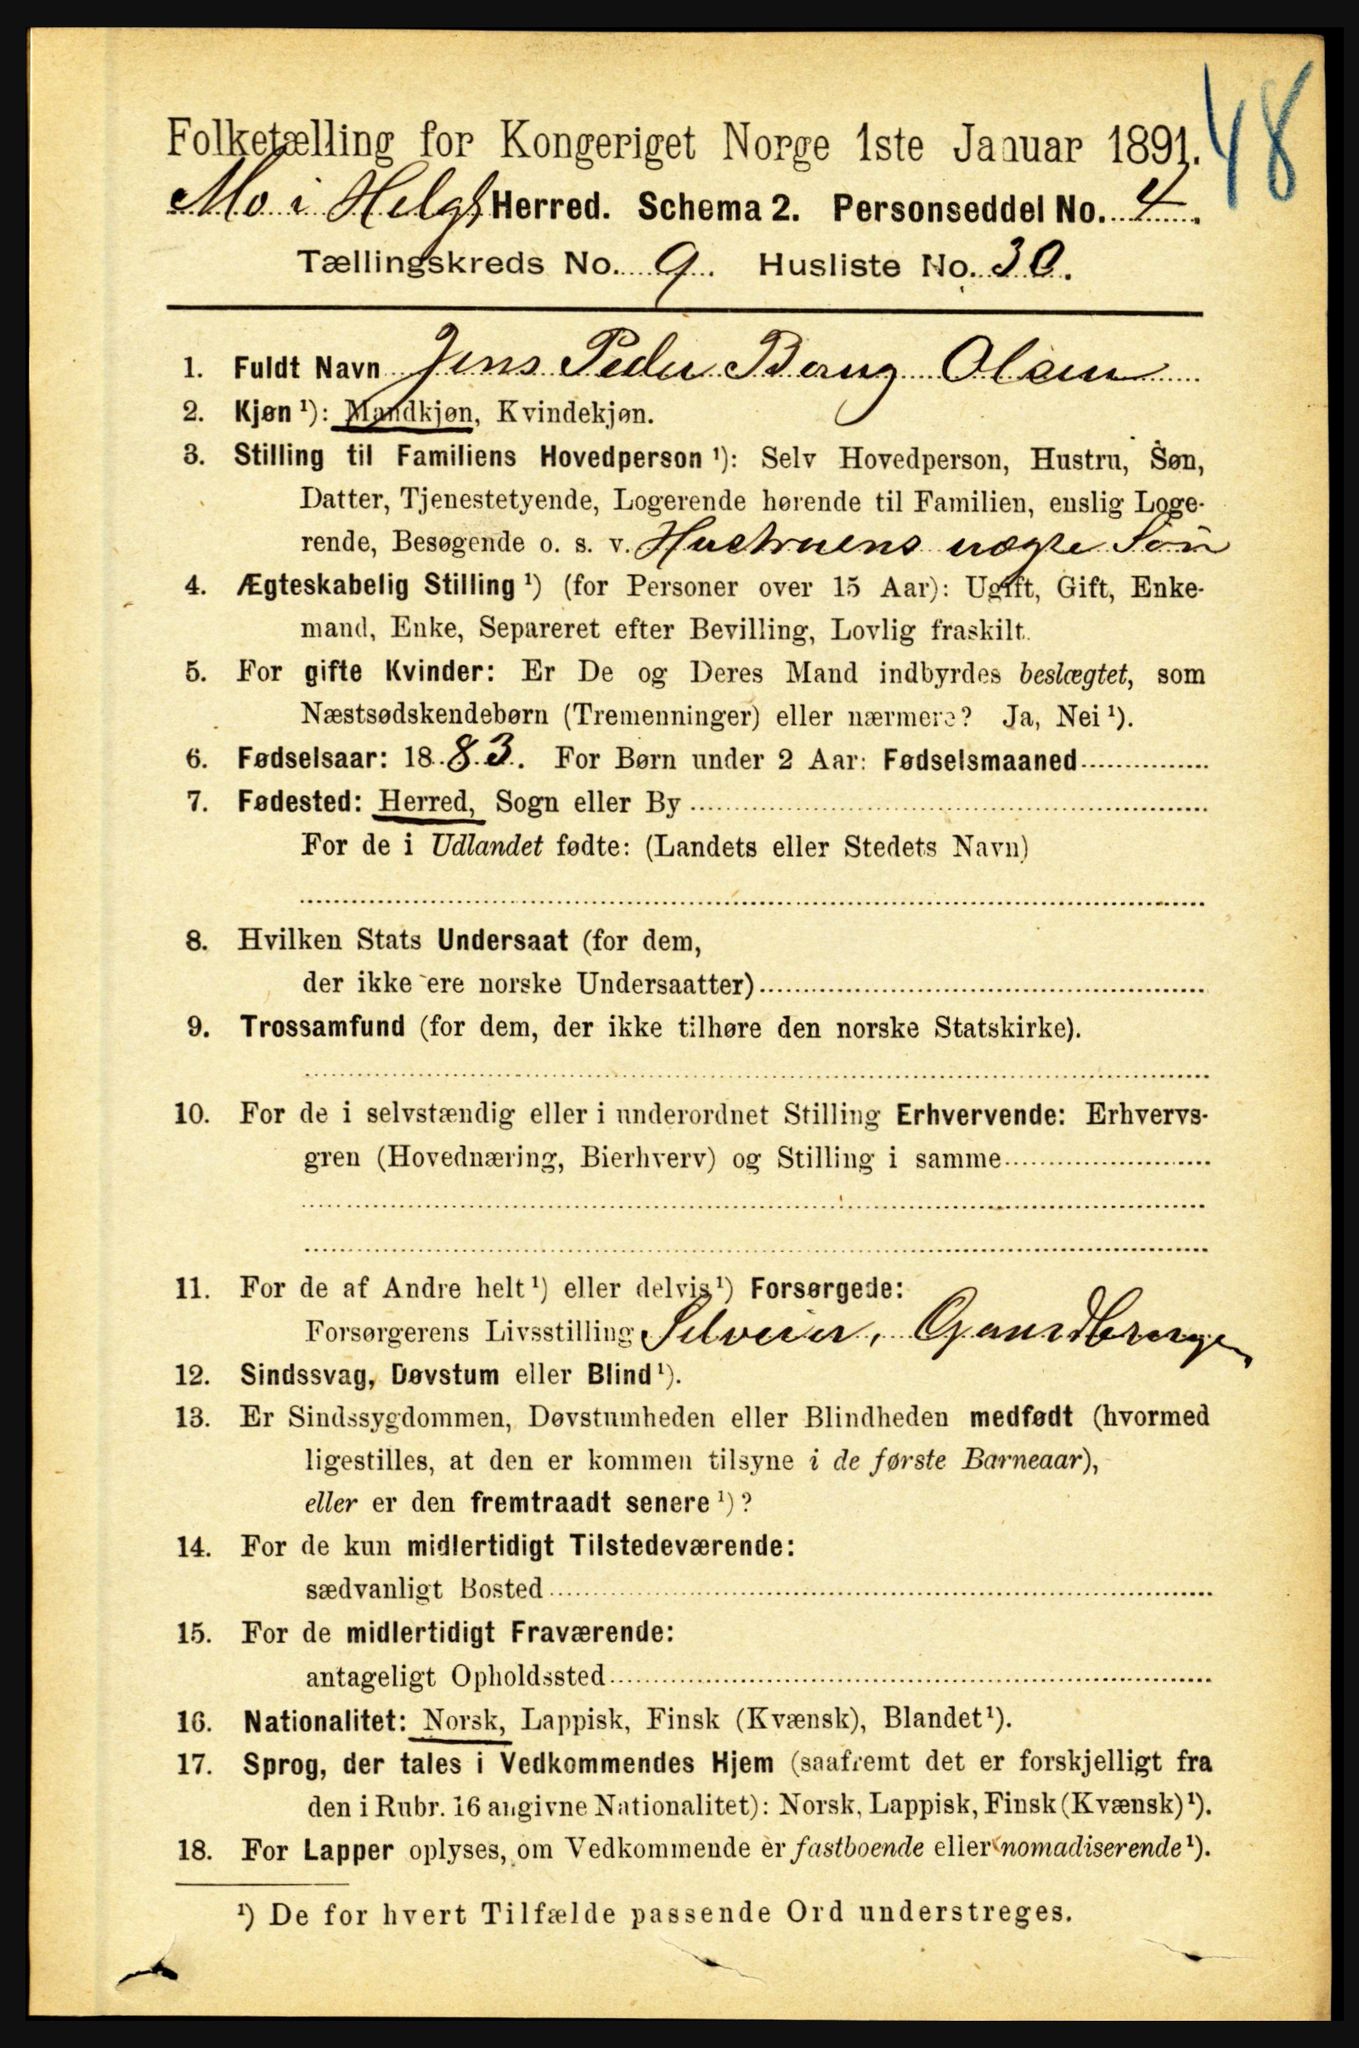 48
Folketælling for Kongeriget Norge 1ste Januar 1891.
Mo i Helgl. Herred. Schema 2. Personseddel No. 4.
Tællingskreds No. 9. Husliste No. 30.
1. Fuldt Navn Jens Peder Bang Olsen
2. Kjøn ¹): Mandkjøn, Kvindekjøn.
3. Stilling til Familiens Hovedperson ¹): Selv Hovedperson, Hustru, Søn,
Datter, Tjenestetyende, Logerende hørende til Familien, enslig Loge-
rende, Besøgende o. s. v. Hustruens uægte Søn
4. Ægteskabelig Stilling ¹) (for Personer over 15 Aar): Ugift, Gift, Enke-
mand, Enke, Separeret efter Bevilling, Lovlig fraskilt.
5. For gifte Kvinder: Er De og Deres Mand indbyrdes beslægtet, som
Næstsødskendebørn (Tremenninger) eller nærmere? Ja, Nei ¹).
6. Fødselsaar: 1883. For Børn under 2 Aar: Fødselsmaaned
7. Fødested: Herred, Sogn eller By
For de i Udlandet fødte: (Landets eller Stedets Navn)
8. Hvilken Stats Undersaat (for dem,
der ikke ere norske Undersaatter)
9. Trossamfund (for dem, der ikke tilhøre den norske Statskirke).
10. For de i selvstændig eller i underordnet Stilling Erhvervende: Erhvervs-
gren (Hovednæring, Bierhverv) og Stilling i samme
11. For de af Andre helt ¹) eller delvis ¹) Forsørgede:
Forsørgerens Livsstilling Selveier, Gaardbruger
12. Sindssvag, Døvstum eller Blind ¹).
13. Er Sindssygdommen, Døvstumheden eller Blindheden medfødt (hvormed
ligestilles, at den er kommen tilsyne i de første Barneaar),
eller er den fremtraadt senere ¹)?
14. For de kun midlertidigt Tilstedeværende:
sædvanligt Bosted
15. For de midlertidigt Fraværende:
antageligt Opholdssted
16. Nationalitet: Norsk, Lappisk, Finsk (Kvænsk), Blandet ¹).
17. Sprog, der tales i Vedkommendes Hjem (saafremt det er forskjelligt fra
den i Rubr. 16 angivne Nationalitet): Norsk, Lappisk, Finsk (Kvænsk) ¹).
18. For Lapper oplyses, om Vedkommende er fastboende eller nomadiserende ¹).
¹) De for hvert Tilfælde passende Ord understreges.